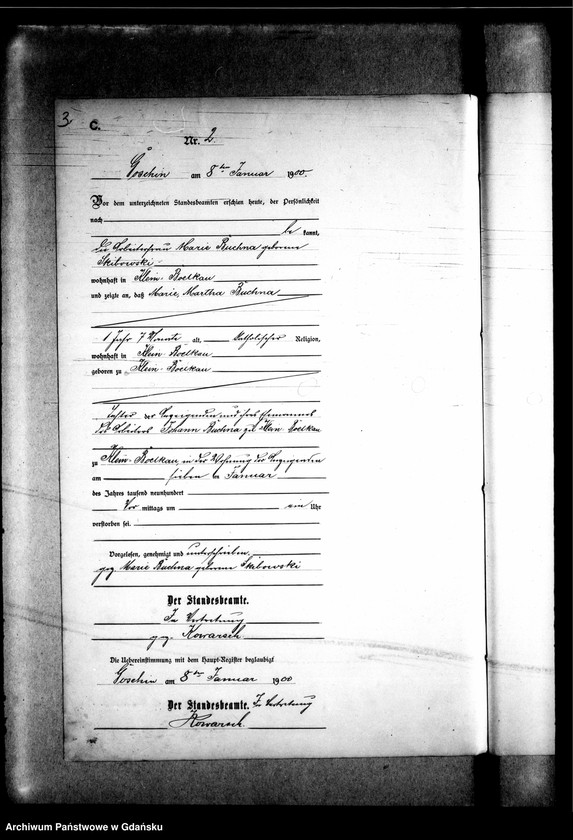 3
C.
Nr. 2.
Goschin am 8ten Januar 1900.
Vor dem unterzeichneten Standesbeamten erschien heute, der Persönlichkeit
nach
be kannt,
die Arbeiterfrau Marie Buchna geborene
Skibowski
wohnhaft in Klein-Boelkau
und zeigte an, daß Marie, Martha Buchna
1 Jahr 7 Monate alt, katholischer Religion,
wohnhaft in Klein-Boelkau
geboren zu Klein-Boelkau
Tochter der Anzeigenden und ihres Ehemannes
des Arbeiters Johann Buchna zu Klein Boelkau
zu Klein-Boelkau, in der Wohnung der Anzeigenden
am sieben ten Januar
des Jahres tausend neunhundert
Vor mittags um ein Uhr
verstorben sei.
Vorgelesen, genehmigt und unterschrieben
gez. Marie Buchna geborene Skibowski
Der Standesbeamte.
In Vertretung
gez. Kowarsch.
Die Uebereinstimmung mit dem Haupt-Register beglaubigt
Goschin am 8ten Januar 1900
Der Standesbeamte. In Vertretung
Kowarsch.
Archiwum Państwowe w Gdańsku